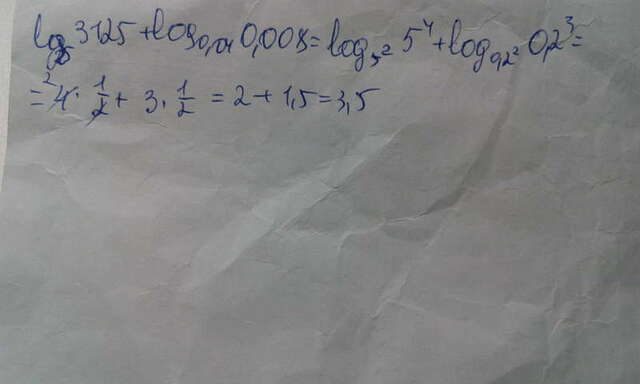 log₂₅ 3125 + log₀,₀₄ 0,008 = log₅² 5⁴ + log₀,₂² 0,2³ =
= 4 · 1/2 + 3 · 1/2 = 2 + 1,5 = 3,5